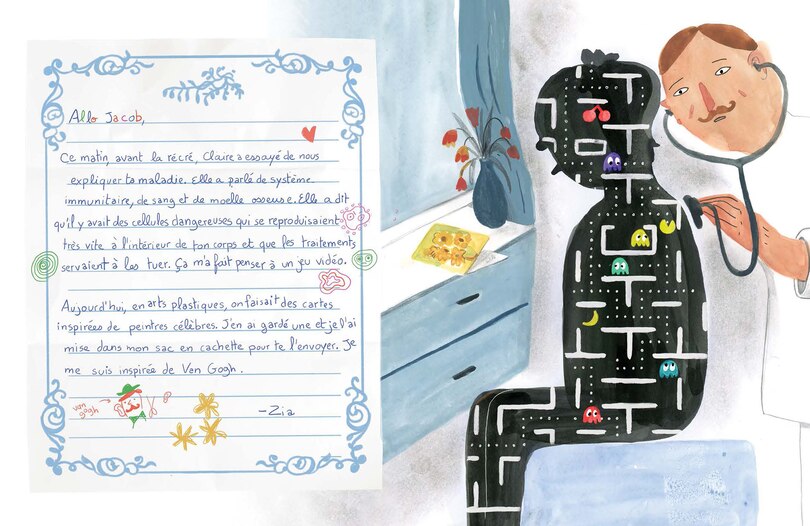 Allo Jacob,
Ce matin, avant la récré, Claire a essayé de nous
expliquer ta maladie. Elle a parlé de système
immunitaire, de sang et de moelle osseuse. Elle a dit
qu'il y avait des cellules dangereuses qui se reproduisaient
très vite à l'intérieur de ton corps et que les traitements
servaient à les tuer. Ça m'a fait penser à un jeu vidéo.
Aujourd'hui, en arts plastiques, on faisait des cartes
inspirées de peintres célèbres. J'en ai gardé une et je l'ai
mise dans mon sac en cachette pour te l'envoyer. Je
me suis inspirée de Van Gogh.
van
gogh
-Zia